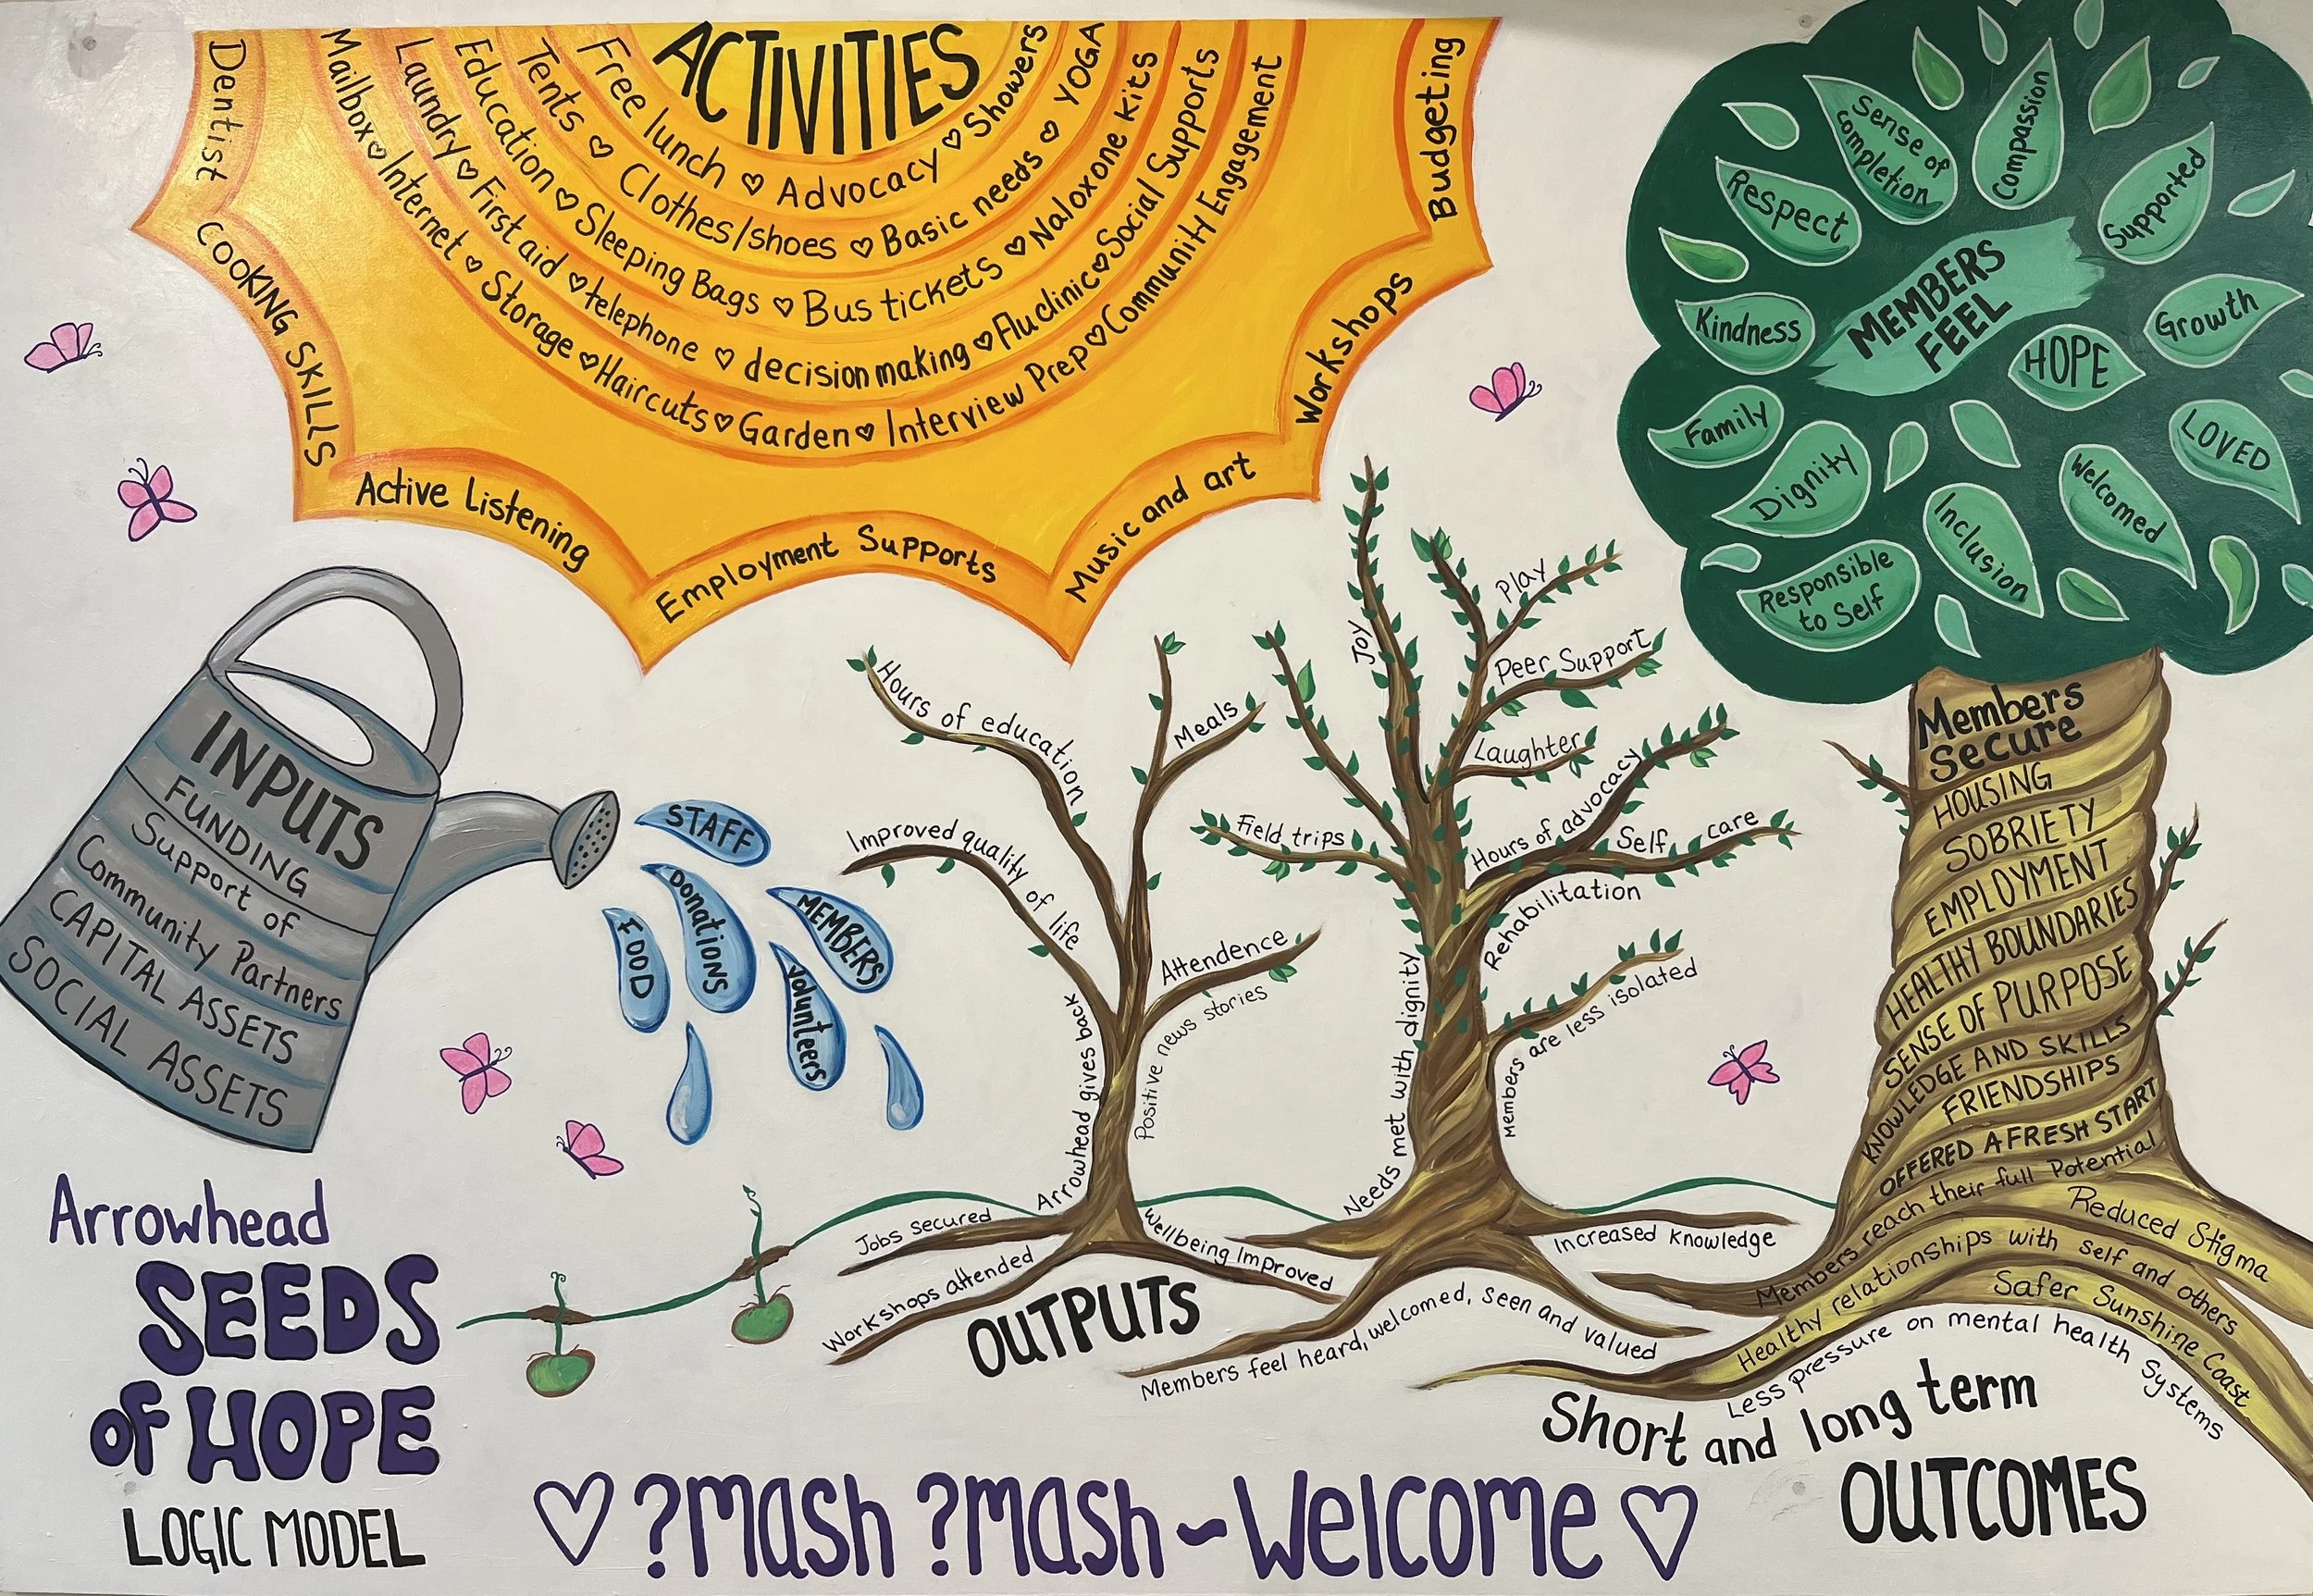 ACTIVITIES
Free lunch ♡ Advocacy ♡ Showers
Tents ♡ Clothes/shoes ♡ Basic needs ♡ YOGA
Education ♡ Sleeping Bags ♡ Bus tickets ♡ Naloxone kits
Laundry ♡ First aid ♡ telephone ♡ decision making ♡ Flu clinic ♡ Social Supports
Mailbox ♡ Internet ♡ Storage ♡ Haircuts ♡ Garden ♡ Interview Prep ♡ Community Engagement
Dentist
COOKING SKILLS
Active Listening
Employment Supports
Music and art
Workshops
Budgeting
INPUTS
FUNDING
Support of
Community Partners
CAPITAL ASSETS
SOCIAL ASSETS
STAFF
DONATIONS
MEMBERS
FOOD
Volunteers
Hours of education
Meals
Improved quality of life
Attendence
Positive news stories
Arrowhead gives back
Jobs Secured
Workshops attended
Wellbeing Improved
OUTPUTS
Joy
Play
Peer Support
Laughter
Hours of advocacy
Field trips
Self care
Rehabilitation
Members are less isolated
Needs met with dignity
Increased Knowledge
Members feel heard, welcomed, seen and valued
MEMBERS
FEEL
Sense of
completion
Compassion
Respect
Supported
Kindness
HOPE
Growth
Family
Dignity
LOVED
Welcomed
Inclusion
Responsible
to Self
Members
Secure
HOUSING
SOBRIETY
EMPLOYMENT
HEALTHY BOUNDARIES
SENSE OF PURPOSE
KNOWLEDGE AND SKILLS
FRIENDSHIPS
OFFERED A FRESH START
Members reach their full Potential
Reduced Stigma
Healthy relationships with self and others
Safer Sunshine Coast
Less pressure on mental health Systems
Short and long term
OUTCOMES
Arrowhead
SEEDS
OF HOPE
LOGIC MODEL
♡ ?mash ?mash ~ Welcome ♡